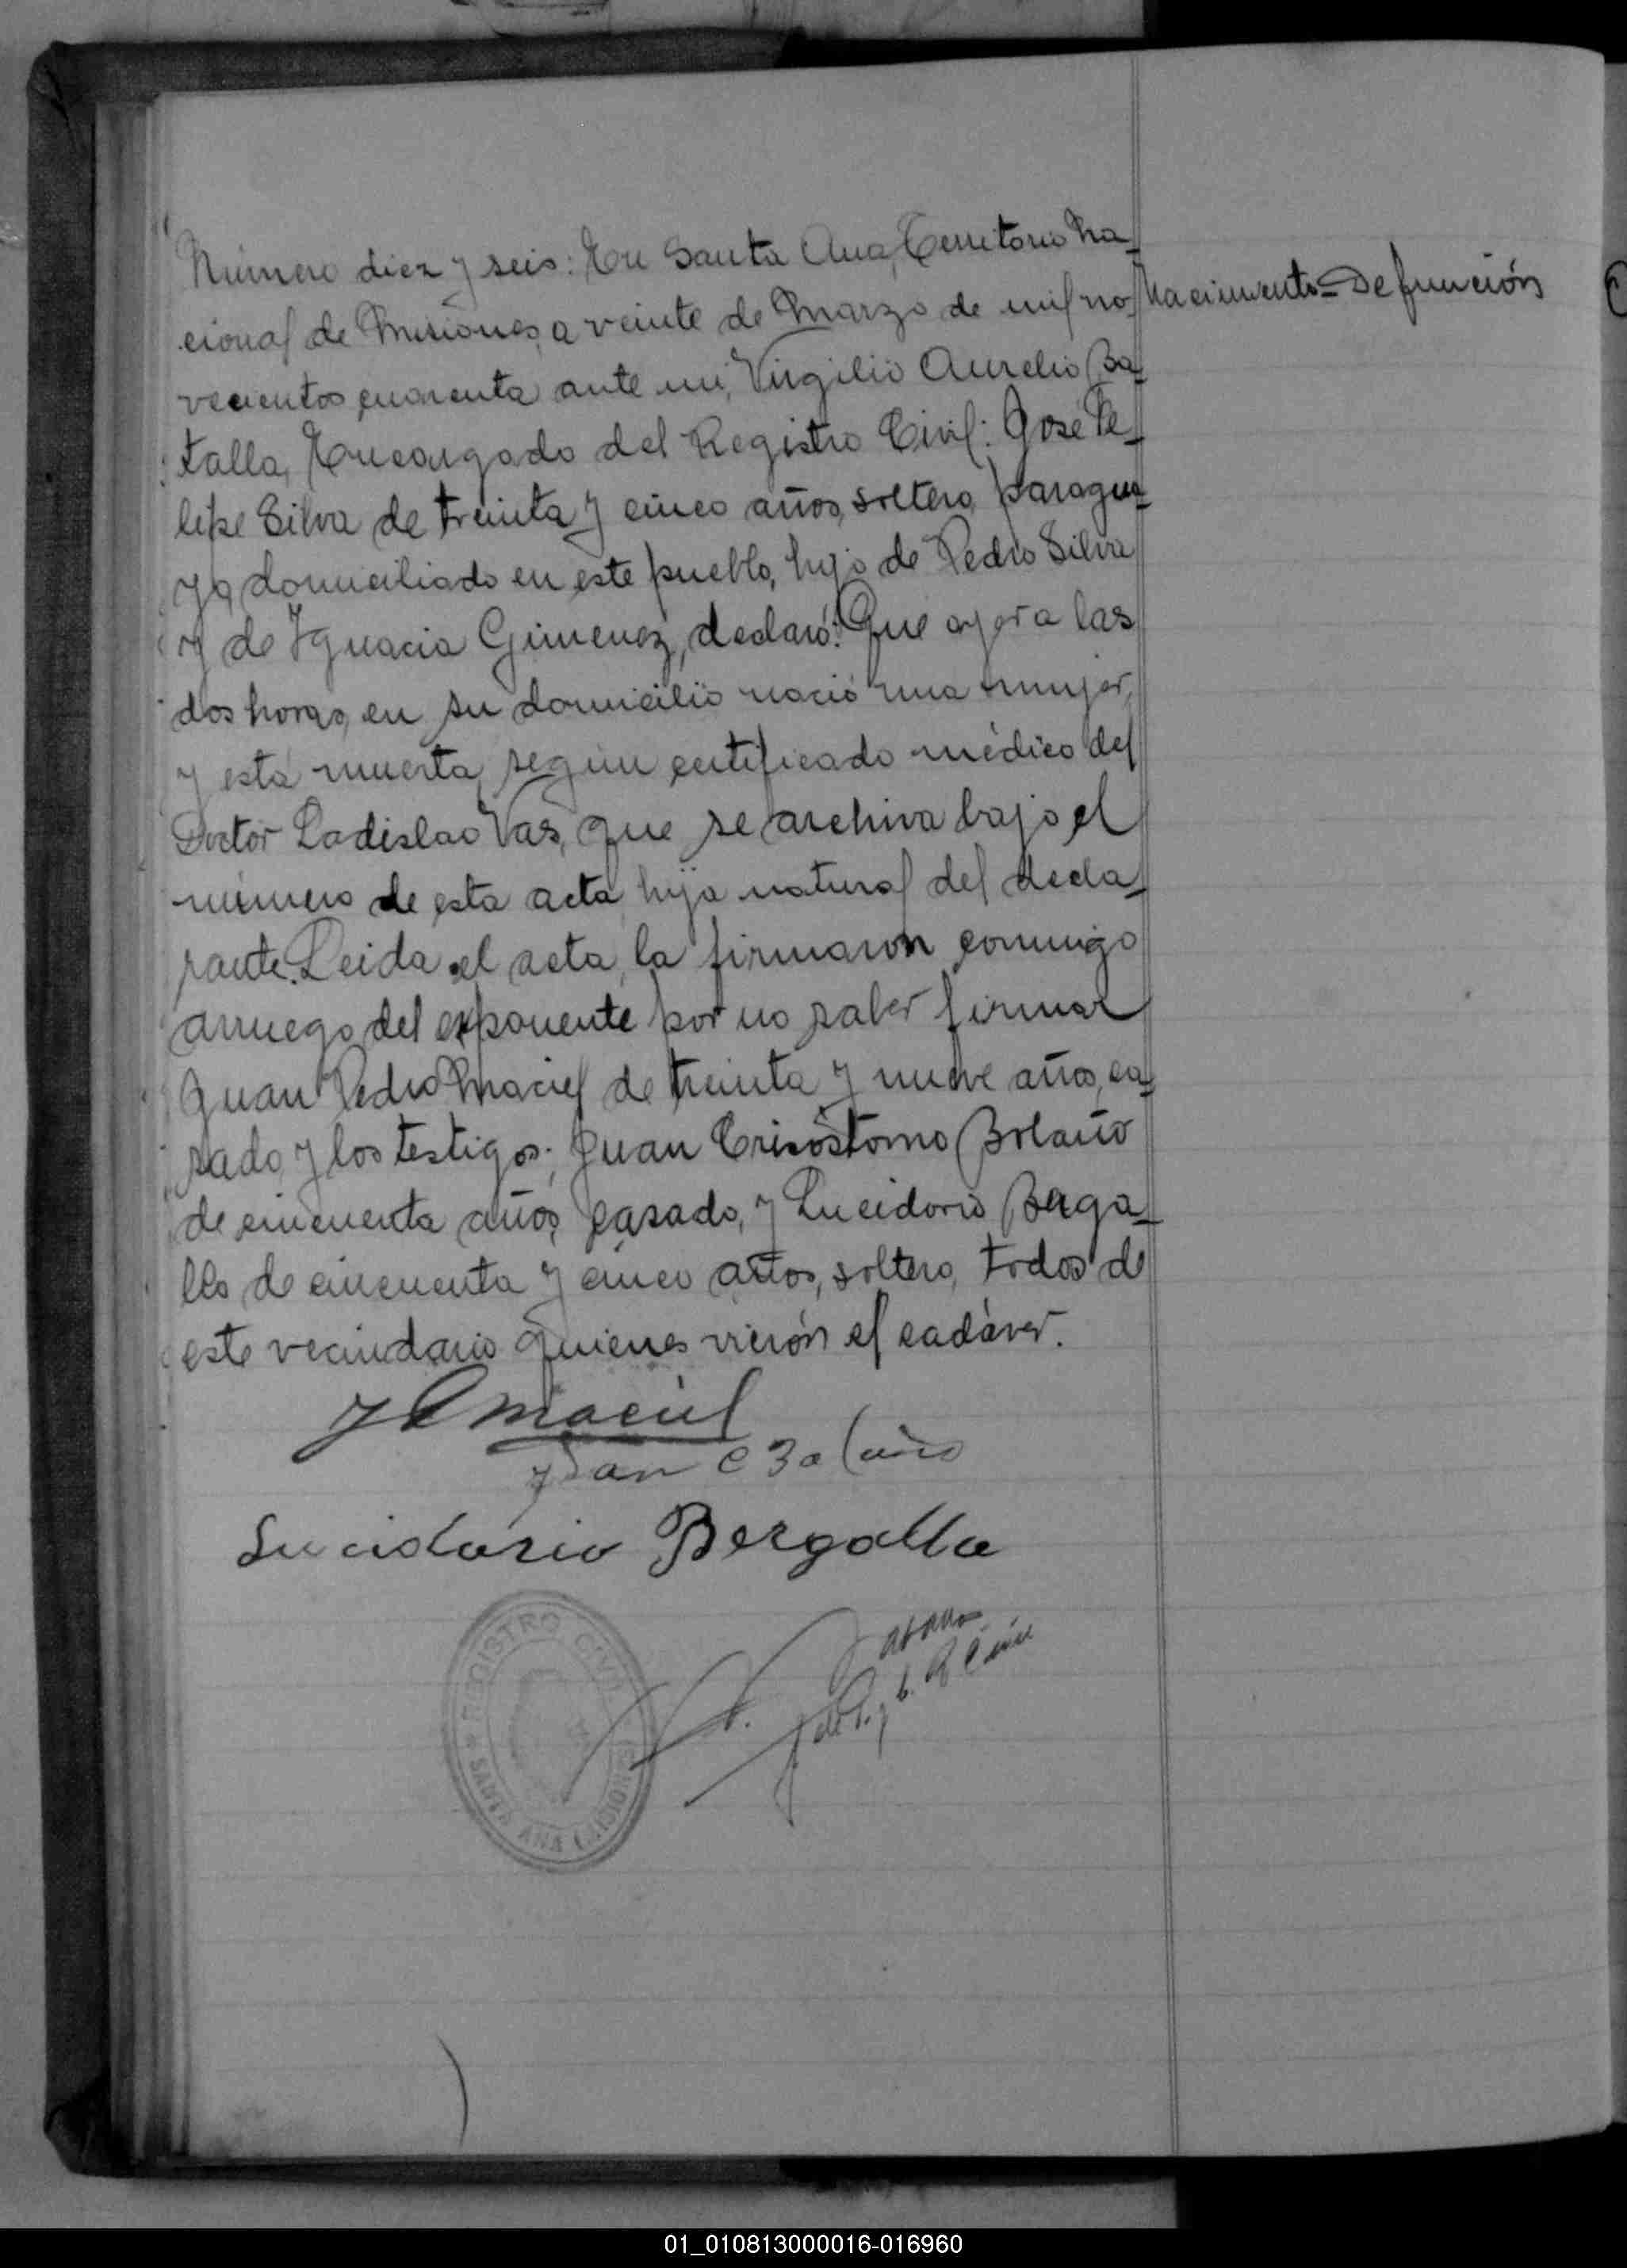 Número diez y seis: En Santa Ana, Territorio Na-
cional de Misiones, a veinte de Marzo de mil no-
Nacimiento=Defunción
vecientos cuarenta ante mi, Virgilio Aurelio Ba-
talla, Encargado del Registro Civil: José Fe-
lipe Silva de treinta y cinco años, soltero, paragua-
yo, domiciliado en este pueblo, hijo de Pedro Silva
y de Ygnacia Gimenez, declaró: Que ayer a las
dos horas, en su domicilio nació una mujer,
y está muerta, según certificado médico del
Doctor Ladislao Vas, que se archiva bajo el
número de esta acta, hija natural del decla-
rante. Leida el acta, la firmaron conmigo
arruego del exponente por no saber firmar
Juan Pedro Maciel de treinta y nueve años, ca-
sado, y los testigos: Juan Crisóstomo Bolaño
de cincuenta años, casado, y Lucidorio Berga-
llo de cincuenta y cinco años, soltero, todos de
este vecindario quienes vierón el cadáver.
J P Maciel
Juan C Bolaño
Lucidorio Bergalla
REGISTRO CIVIL
SANTA ANA (MISIONES)
01_010813000016-016960